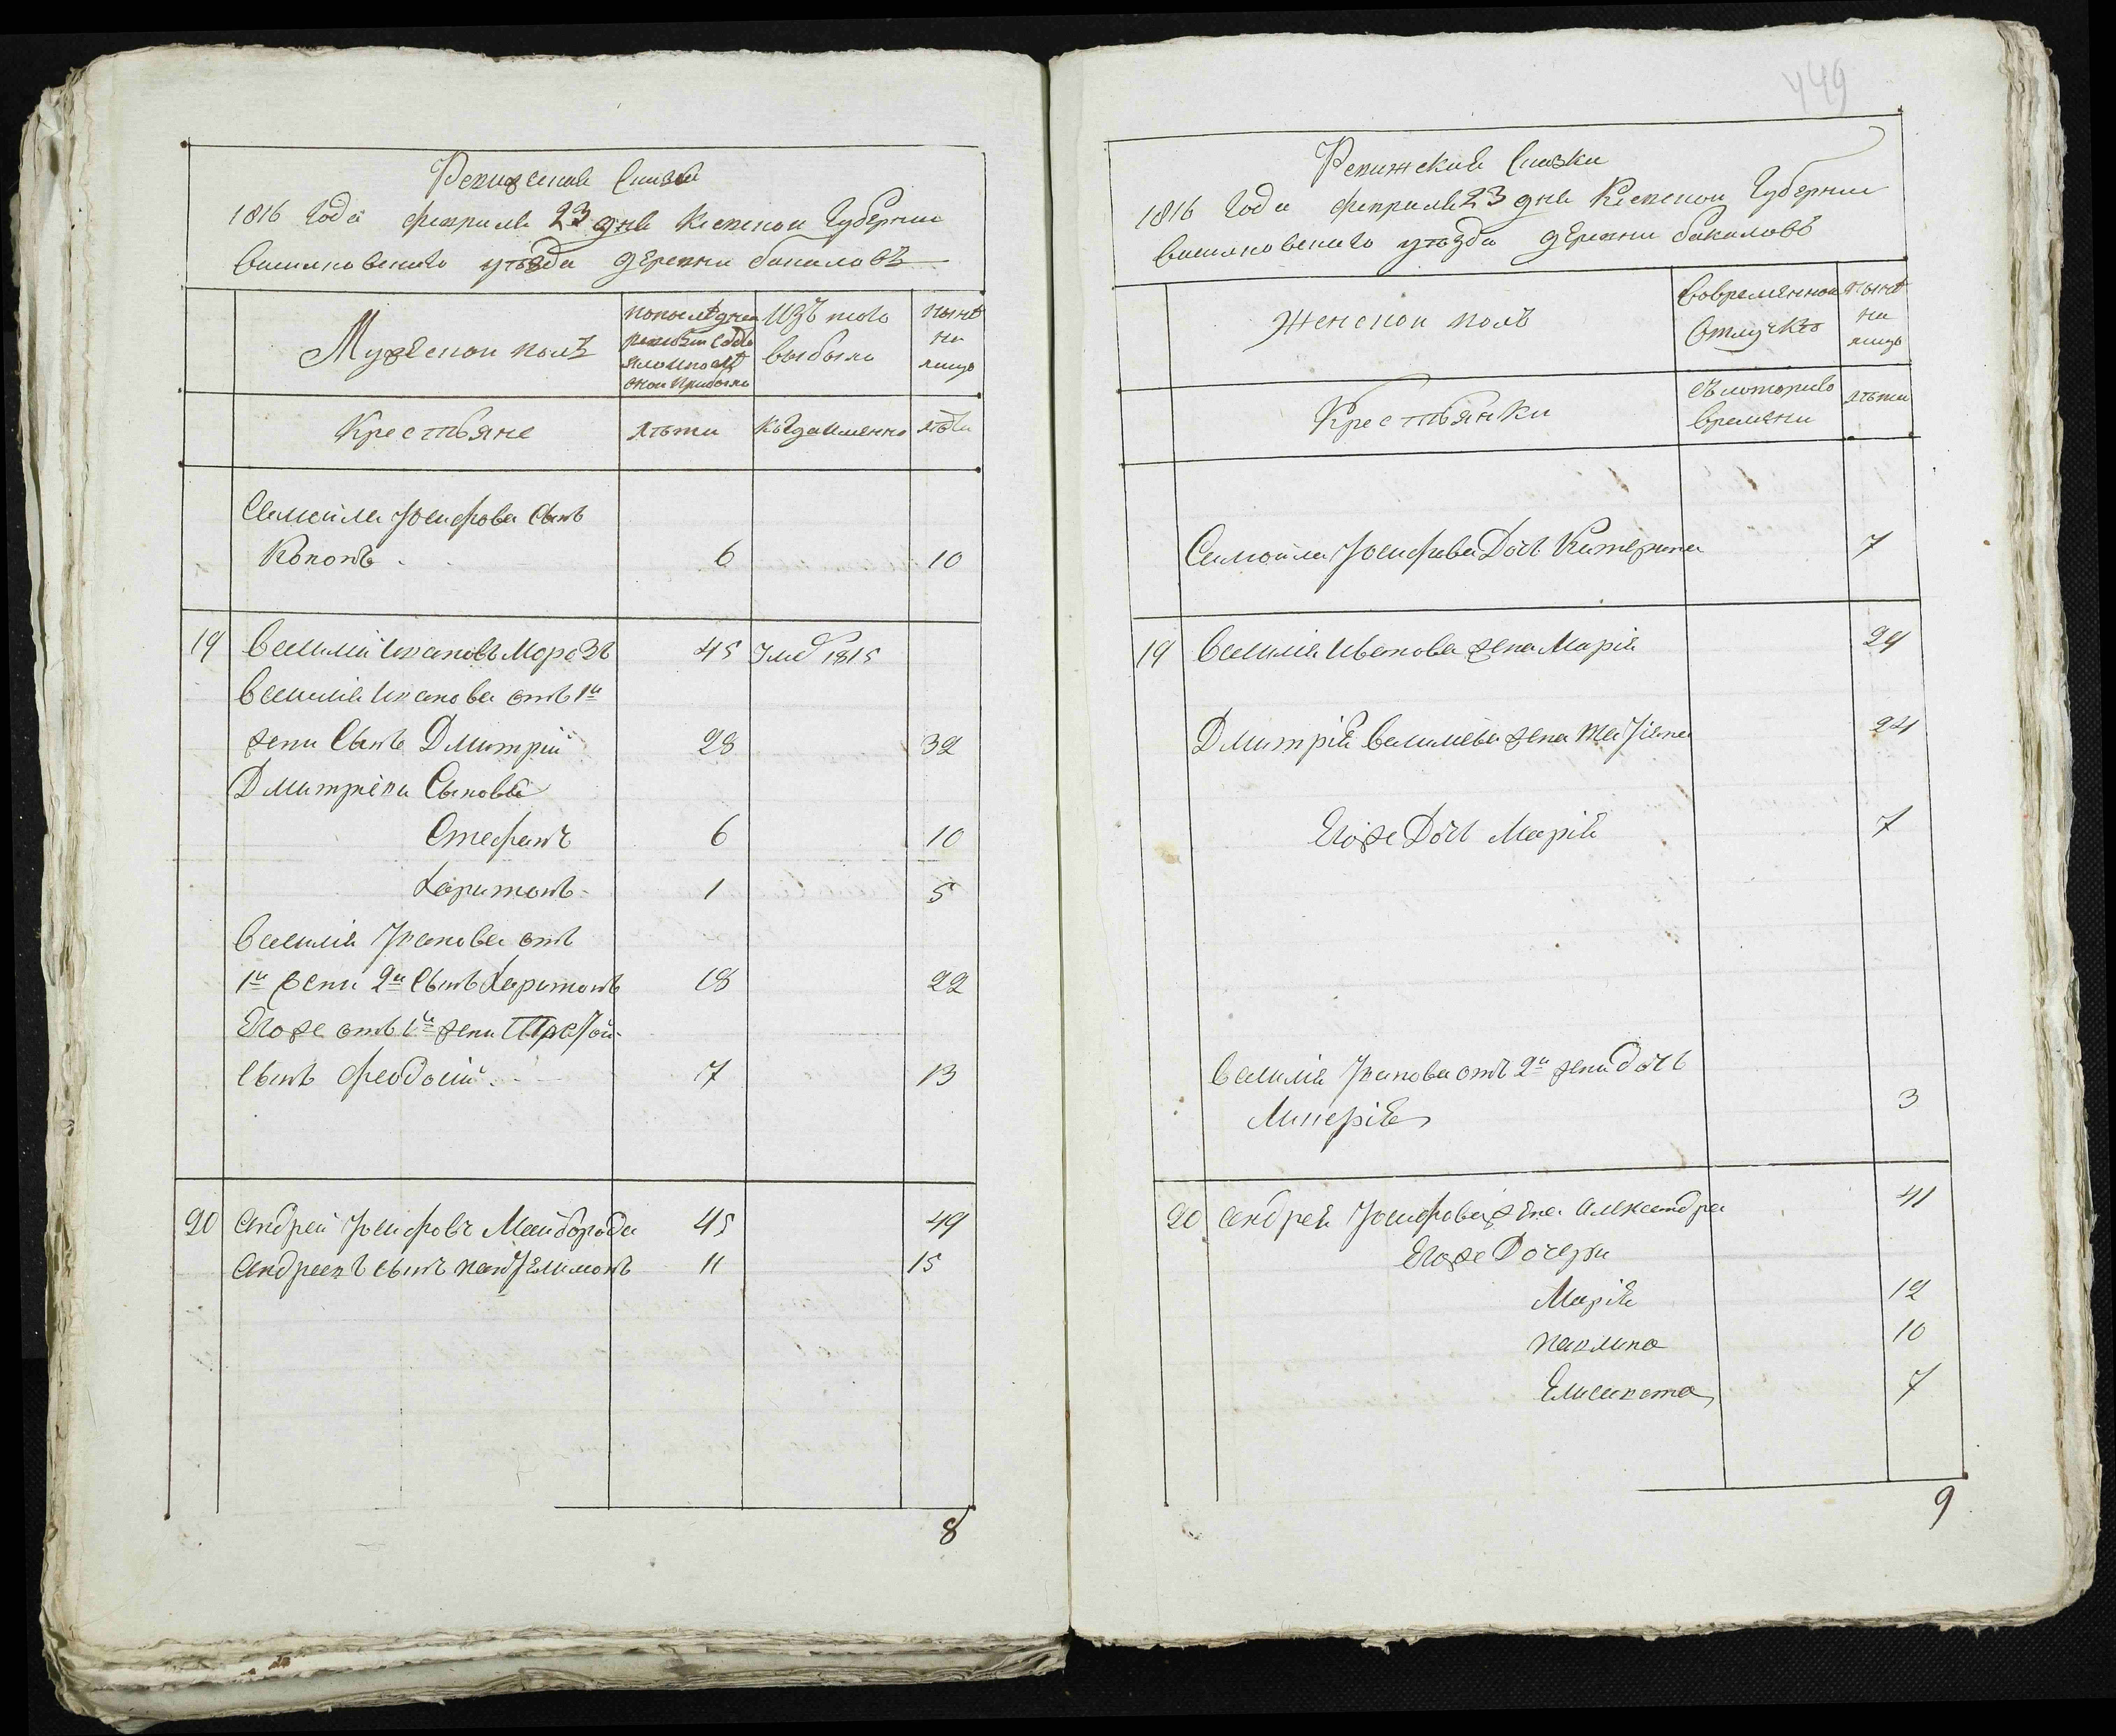 Ревизская Сказка
1816 Года февраля 23 дня Киевской Губернии
Васильковского уѣзда деревни бакаловъ
Мужеской полъ
попослѣдней ревизіи состояло и послѣ оной прибыло
Изъ того выбыло
нынѣ на лицо
Крестьяне
лѣта
Когда именно
лѣта
Самойла Іосифова Сынъ
Кононъ 6 10
19 Василий Ивановъ Морозъ 45 Умер 1815
Василія Иванова отъ 1й
жени Сынъ Дмитрій 28 32
Дмитріева Сыновя
Стефанъ 6 10
Харитонъ 1 5
Василія Іванова отъ
1й жени 2й Сынъ Харитонъ 18 22
Егоже отъ 1й жени
сынъ Феодосій 7 13
20 Андрей Іосифовъ Майборода 45 49
Андреевъ сынъ Пантелимонъ 11 15
8
449
Ревижская Сказка
1816 Года февраля 23 дня Киевской Губернии
Васильковского уѣзда деревни бакаловъ
Женской полъ
Вовременной Отлучкѣ
нынѣ на лицо
Крестьянки
съ которого времени
лѣта
Самойла Іосифова Дочь Катерина 7
19 Василія Иванова жена Марія 29
Дмитрія Василиева жена Татіана 24
Егоже Дочь Марія 7
Василія Іванова отъ 2й жени дочь
3
20 Андрея Іосифова жена Александра 41
Егоже Дочери
Марія 12
Павлина 10
Елисавета 7
9